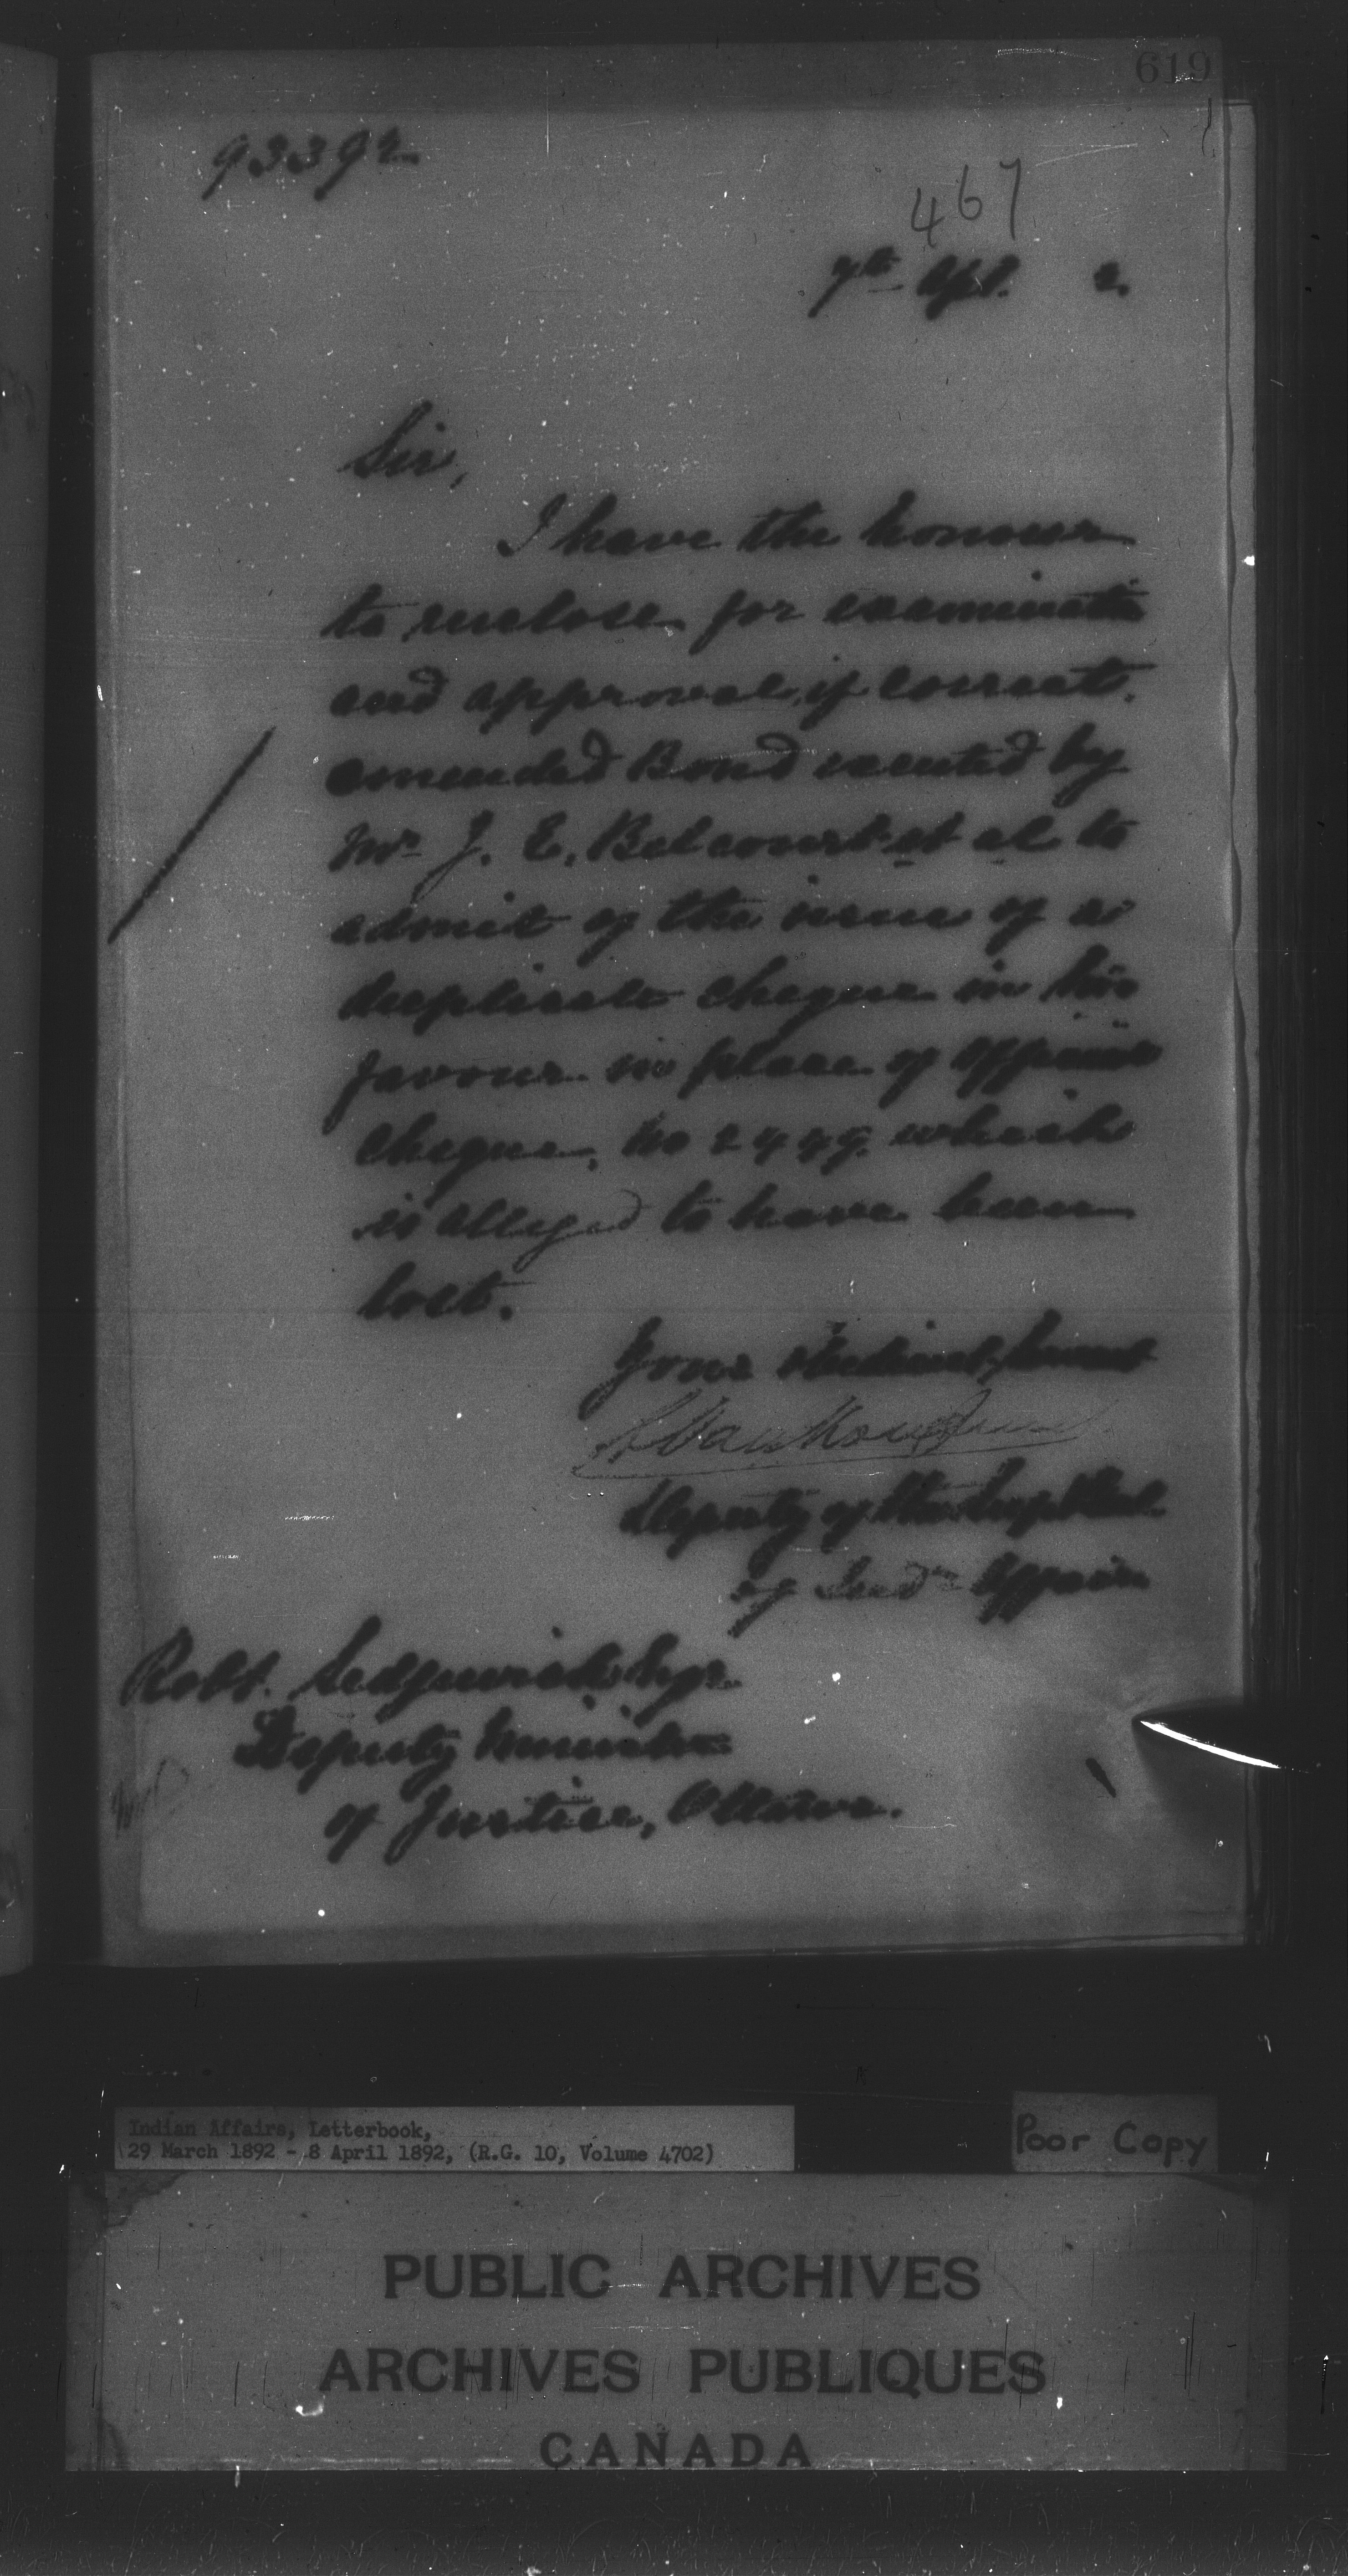 619
93392
467
7th Apl. 2.
Sir,
I have the honour
to enclose for examination
and approval, if correct,
amended Bond executed by
Mr J. E. Belcourt et al to
admit of the issue of a
duplicate cheque in his
favour in place of official
cheque, No which
is alleged to have been
lost.
Your obedient servant
L Vankoughnet
Deputy of the Supt Genl.
of Indn Affairs
Robt. Sedgewick Esqr.
Deputy Minister
of Justice, Ottawa.
Indian Affairs, Letterbook,
29 March 1892 - 8 April 1892, (R.G. 10, Volume 4702)
Poor Copy
PUBLIC ARCHIVES
ARCHIVES PUBLIQUES
CANADA